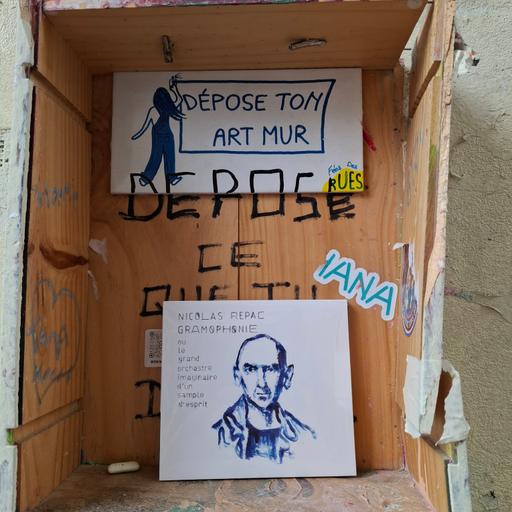 DÉPOSE TON
ART MUR
Fées Des
RUES
DEPOSE
CE
QUE TU
IANA
NICOLAS REPAC
GRAMOPHONIE
ou
le
grand
orchestre
imaginaire
d'un
sample
d'esprit
D